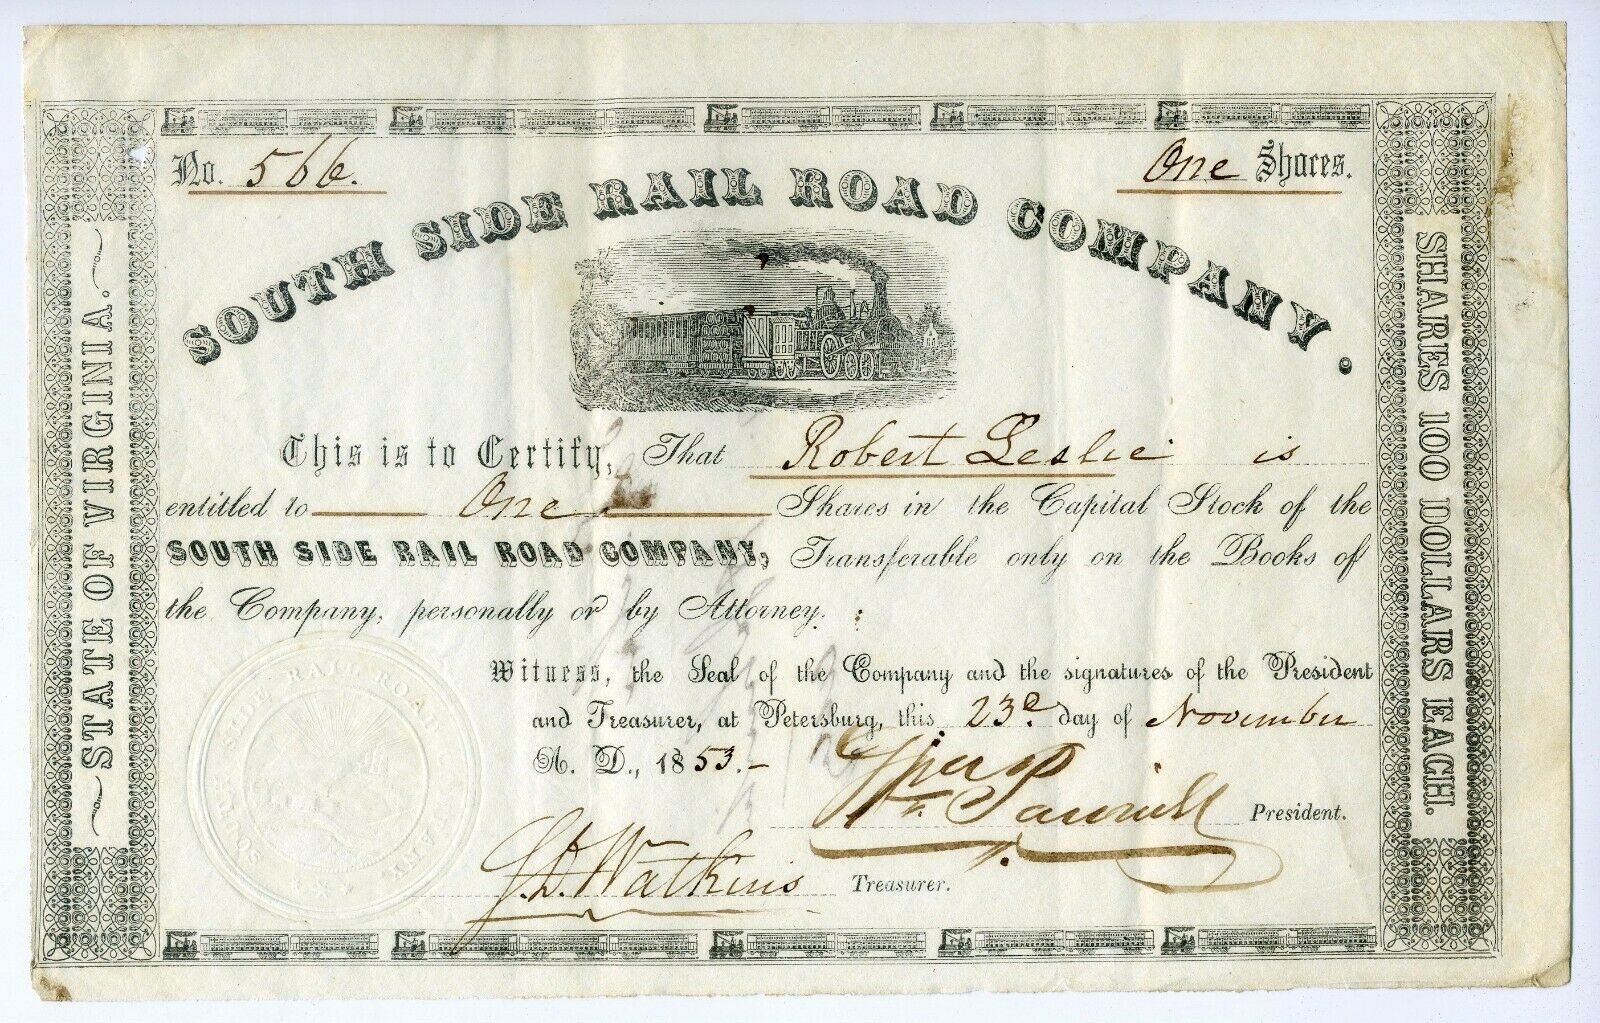 No. 566.
One Shares.
SOUTH SIDE RAIL ROAD COMPANY.
STATE OF VIRGINIA.
SHARES 100 DOLLARS EACH.
This is to Certify, That Robert Leslie is
entitled to One Shares in the Capital Stock of the
SOUTH SIDE RAIL ROAD COMPANY, Transferable only on the Books of
the Company, personally or by Attorney.
Witness, the Seal of the Company and the signatures of the President
and Treasurer, at Petersburg, this 23d day of November
A. D., 1853.
President.
J. D. Watkins Treasurer.
SOUTH SIDE RAIL ROAD COMPANY